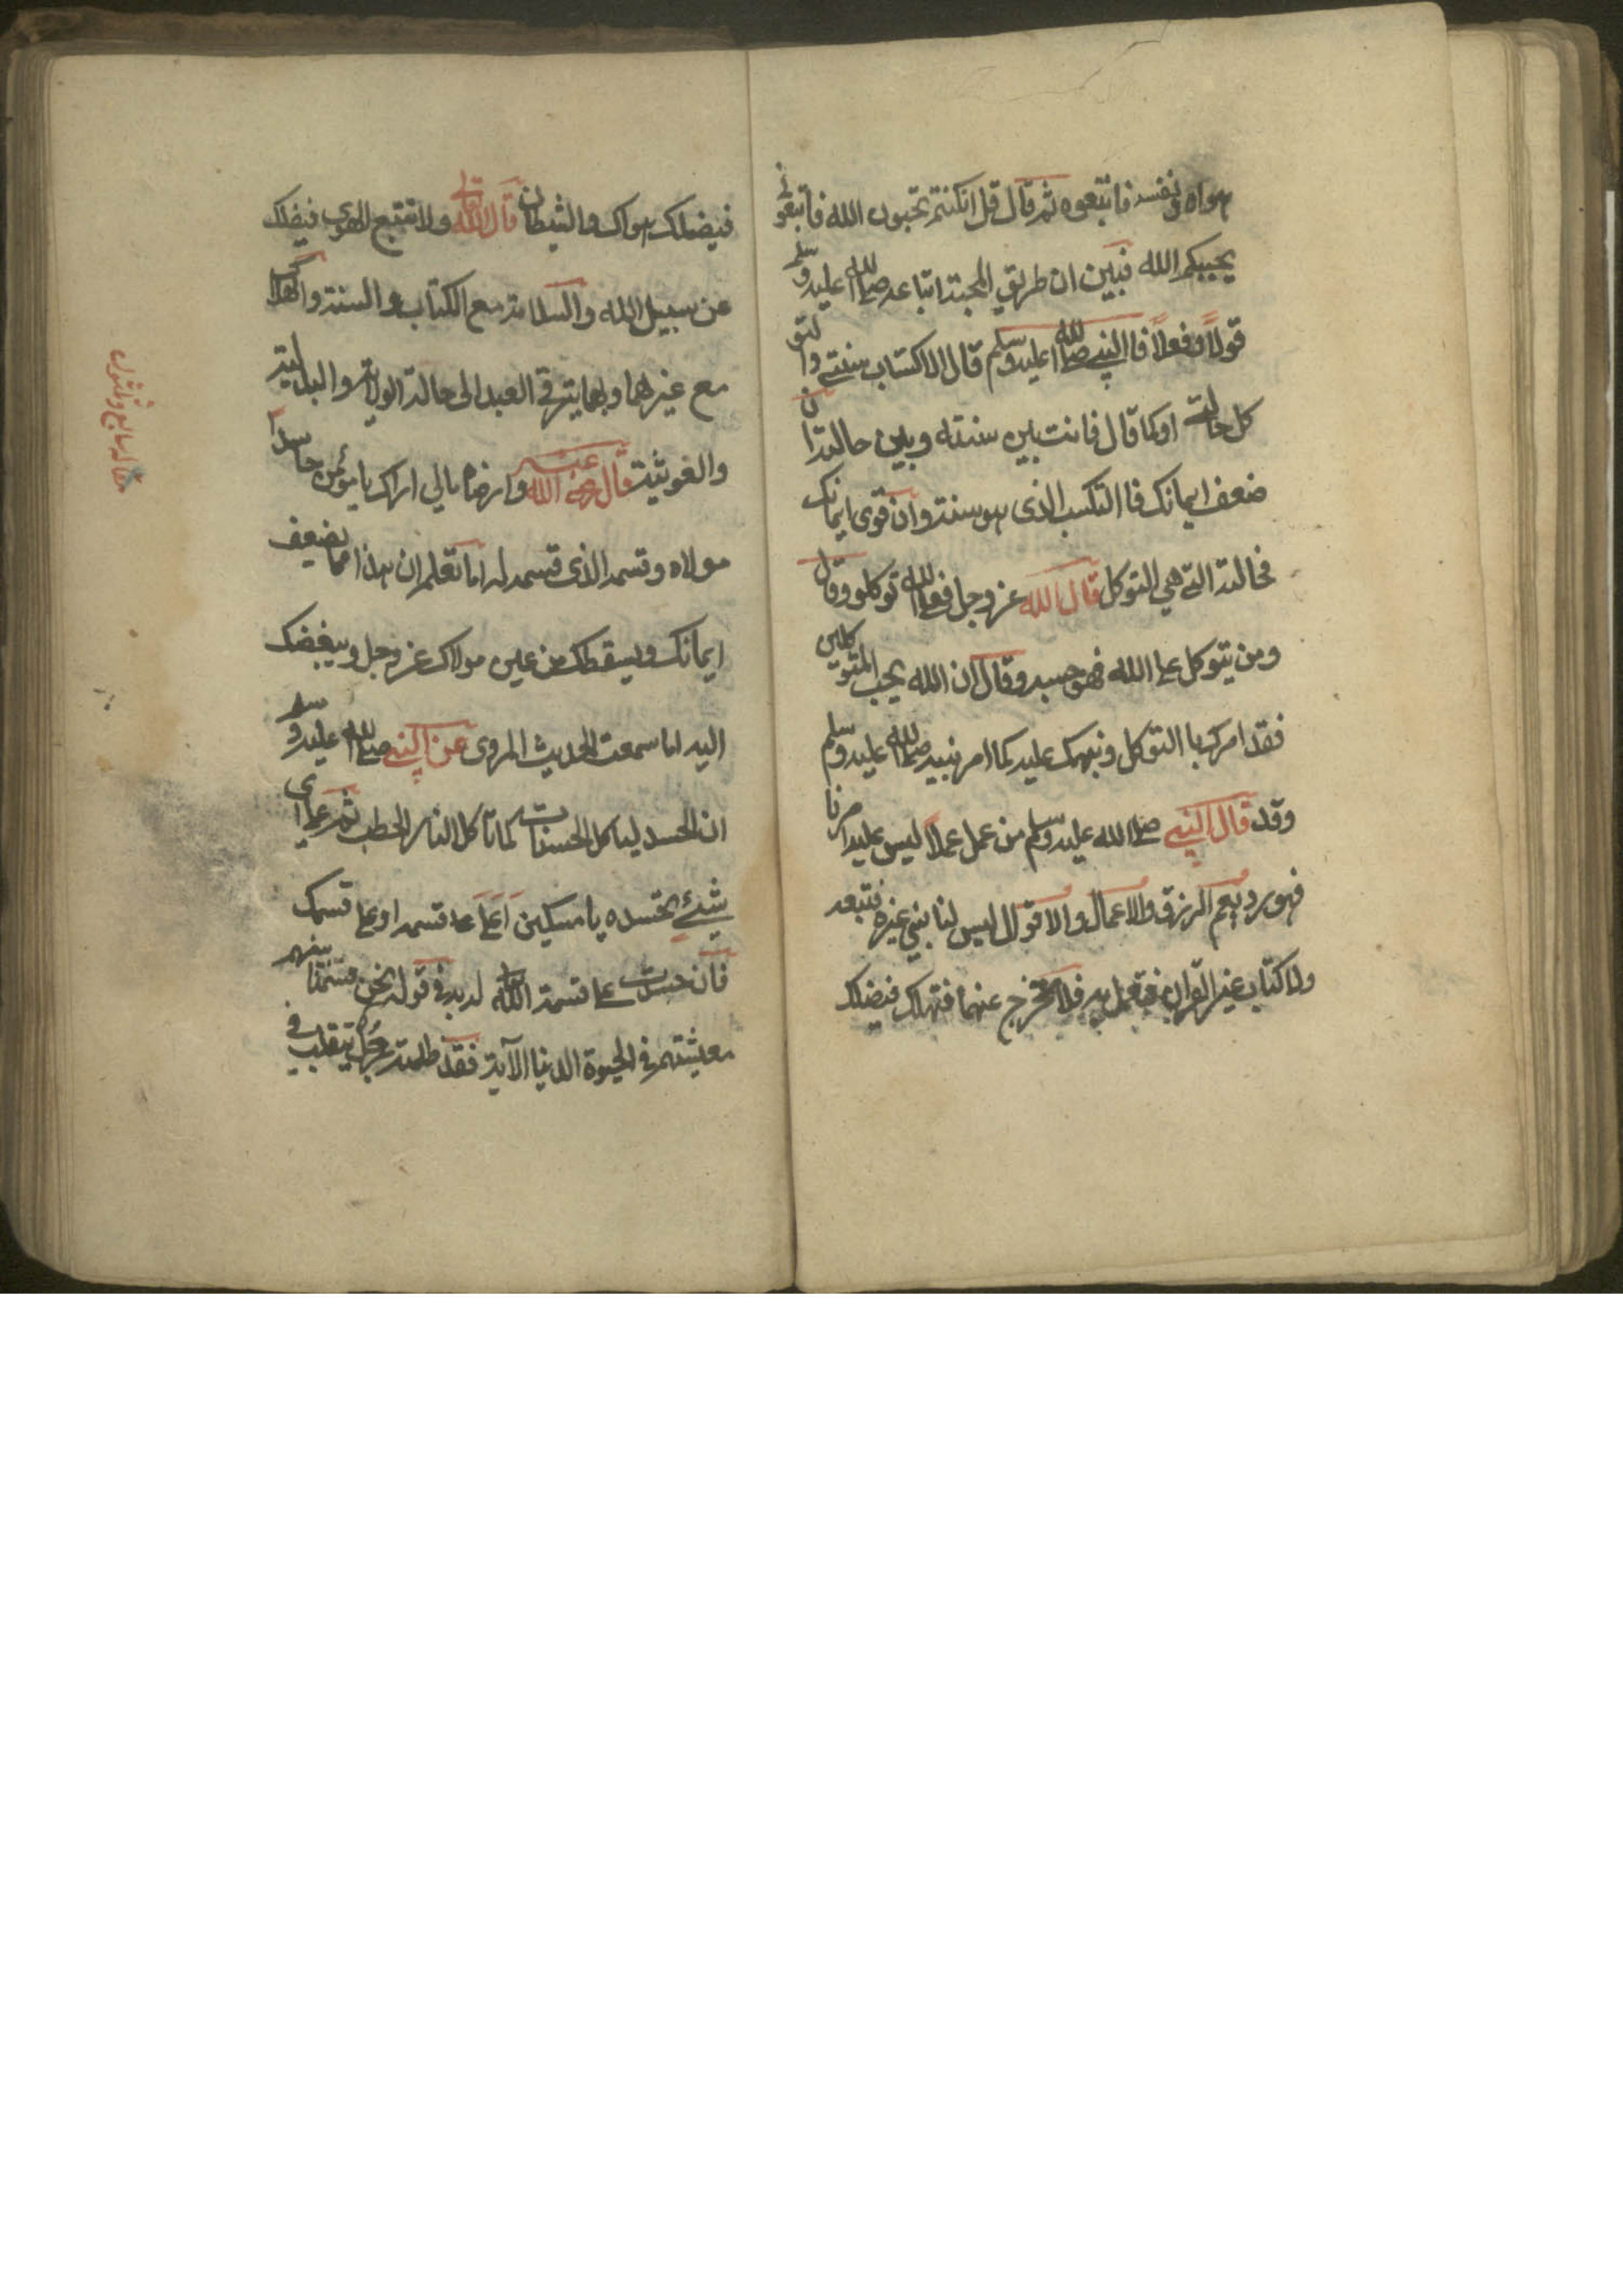 هواه ونفسه فاتبعوه ثم قال قل ان كنتم تحبون الله فاتبعونى
يحببكم الله فبين ان طريق المحبة اتباعه صلى الله عليه وسلم
قولاً وفعلاً فا النبى صلى الله عليه وسلم قال الاكتساب سنتى والتو
كل حالتى اوكما قال فانت بين سنته وبين حالته ان
ضعف ايمانك فا التكسب الذى هو سنته وان قوى ايمانك
فحالته التى هى التوكل قال الله عز وجل فعلى الله توكلوو قال
ومن يتوكل على الله فهو حسبه وقال ان الله يحب المتوكلين
فقد امرك با التوكل ونبهك عليه كما امر نبيه صلى الله عليه وسلم
وقد قال النبى صلى الله عليه وسلم من عمل عملاً ليس عليه امرنا
فهو رد يعم الرزق والاعمال والاقوال ليس لنا نبى غيره فنتبعه
ولا كتاب غير القرآن فنعمل به فلا تخرج عنهما فتهلك فيضلك
فيضلك هواك والشيطان قال الله تعالى ولا تتبع الهوى فيضلك
عن سبيل الله والسلامة مع الكتاب والسنة والهلاك
مع غيرهما وبهما يترقى العبد الى حالة الولاية والبدلية
والغوثية قال رضى الله عنه وارضاه مالى اراك يا مؤمن حاسداً
مولاه وقسمه الذى قسمه له اما تعلم ان هذا مما يضعف
ايمانك ويسقطك من عين مولاك عز وجل ويبغضك
اليه اما سمعت الحديث المروى عن النبى صلى الله عليه وسلم
ان الحسد لياكل الحسنات كما تاكل النار الحطب ثم على اى
شىء تحسده يا مسكين اعلى قسمه او على قسمك
فان حسدت على قسمة الله تعالى له به فى قوله نحن قسمنا بينهم
معيشتهم فى الحيوة الدنيا الآية فقد ظلمته رجل يتقلب فى